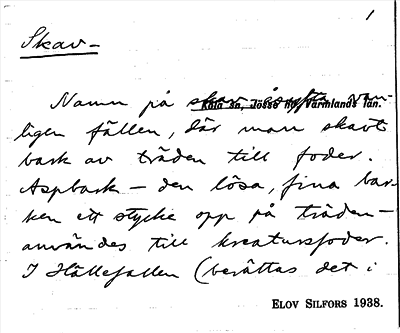 1
Skav-
Namn på skav
Köla sn, Jösse hd, Värmlands län.
ligen fällen, där man skavt
bark av träden till foder.
Aspbark – den lösa, fina bar-
ken ett stycke opp på träden –
användes till kreatursfoder.
I Hällefallen (berättas det i
ELOV SILFORS 1938.